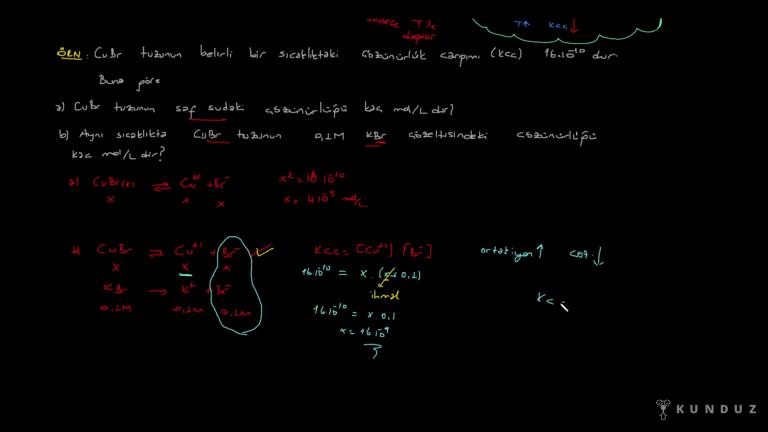 sadece T ile
değişir
T↑ Kçç↓
ÖRN: CuBr tuzunun belirli bir sıcaklıktaki çözünürlük çarpımı (Kçç) 16.10⁻¹⁰ dur.
Buna göre
a) CuBr tuzunun saf sudaki çözünürlüğü kaç mol/L dir?
b) Aynı sıcaklıkta CuBr tuzunun 0,1M KBr çözeltisindeki çözünürlüğü
kaç mol/L dir?
a) CuBr(k) ⇌ Cu⁺¹ + Br⁻ x² = 16.10⁻¹⁰
x x x x = 4.10⁻⁵ mol/L
b) CuBr ⇌ Cu⁺¹ + Br⁻ Kçç = [Cu⁺¹] [Br⁻] ortak iyon ↑ çöz. ↓
x x x 16.10⁻¹⁰ = x. (x+0,1)
KBr → K⁺ + Br⁻ ihmal
0,1M 0,1M 0,1M 16.10⁻¹⁰ = x. 0,1
x = 16.10⁻⁹
KUNDUZ